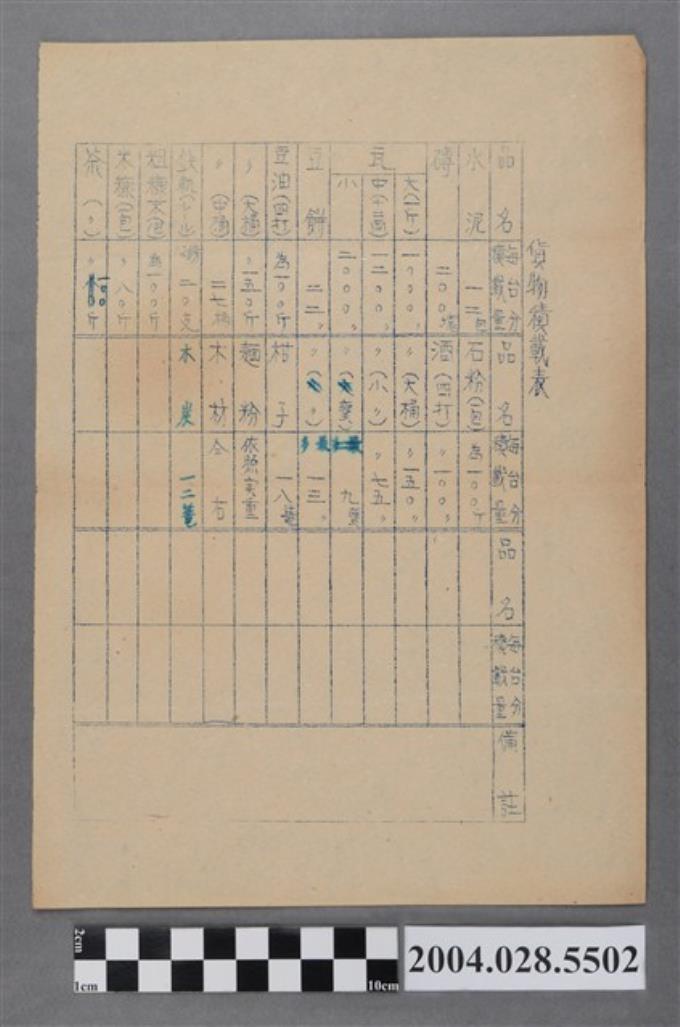 貨物積載表
品名 每台分積載量 品名 每台分積載量 品名 每台分積載量 備註
水泥 〃一二包 石粉(包) 為一〇〇斤
磚 二〇〇塊 酒(四打) 〃一〇〇〃
瓦 大(一斤) 一〇〇〇〃 〃(大桶) 〃一五〇〃
中 一二〇〇〃 〃(小〃) 〃七五〃
小 二〇〇〇〃 九甕
豆餅 二二〃 一三〃
豆油(四打) 為一〇〇斤 柑子 一八篭
〃(大桶) 〃一五〇斤 麵粉 依照實重
〃(中桶) 二七桶 木材 仝右
二〇支 木炭 一二篭
粗糠(包) 為一〇〇斤
(包) 〃八〇斤
茶(〃) 〃一〇〇斤
2cm
1cm
10cm
2004.028.5502